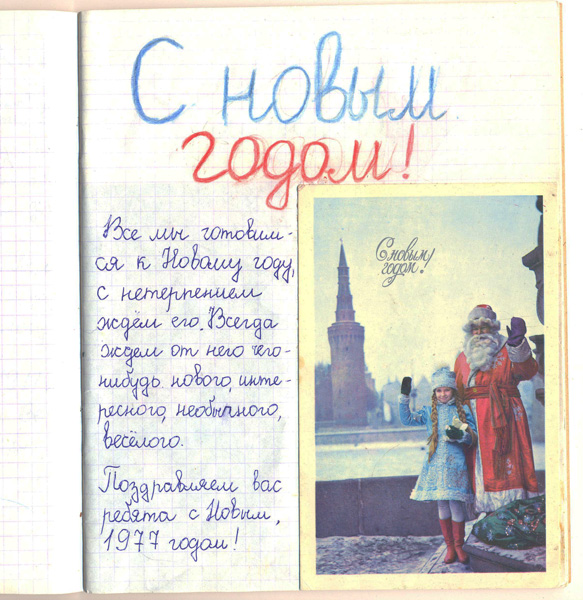 С новым
годом!
Все мы готовим-
ся к Новому году,
с нетерпением
ждём его. Всегда
ждем от него чего-
нибудь нового, инте-
ресного, необычного,
весёлого.
Поздравляем вас
ребята с Новым,
1977 годом!
С новым
годом!